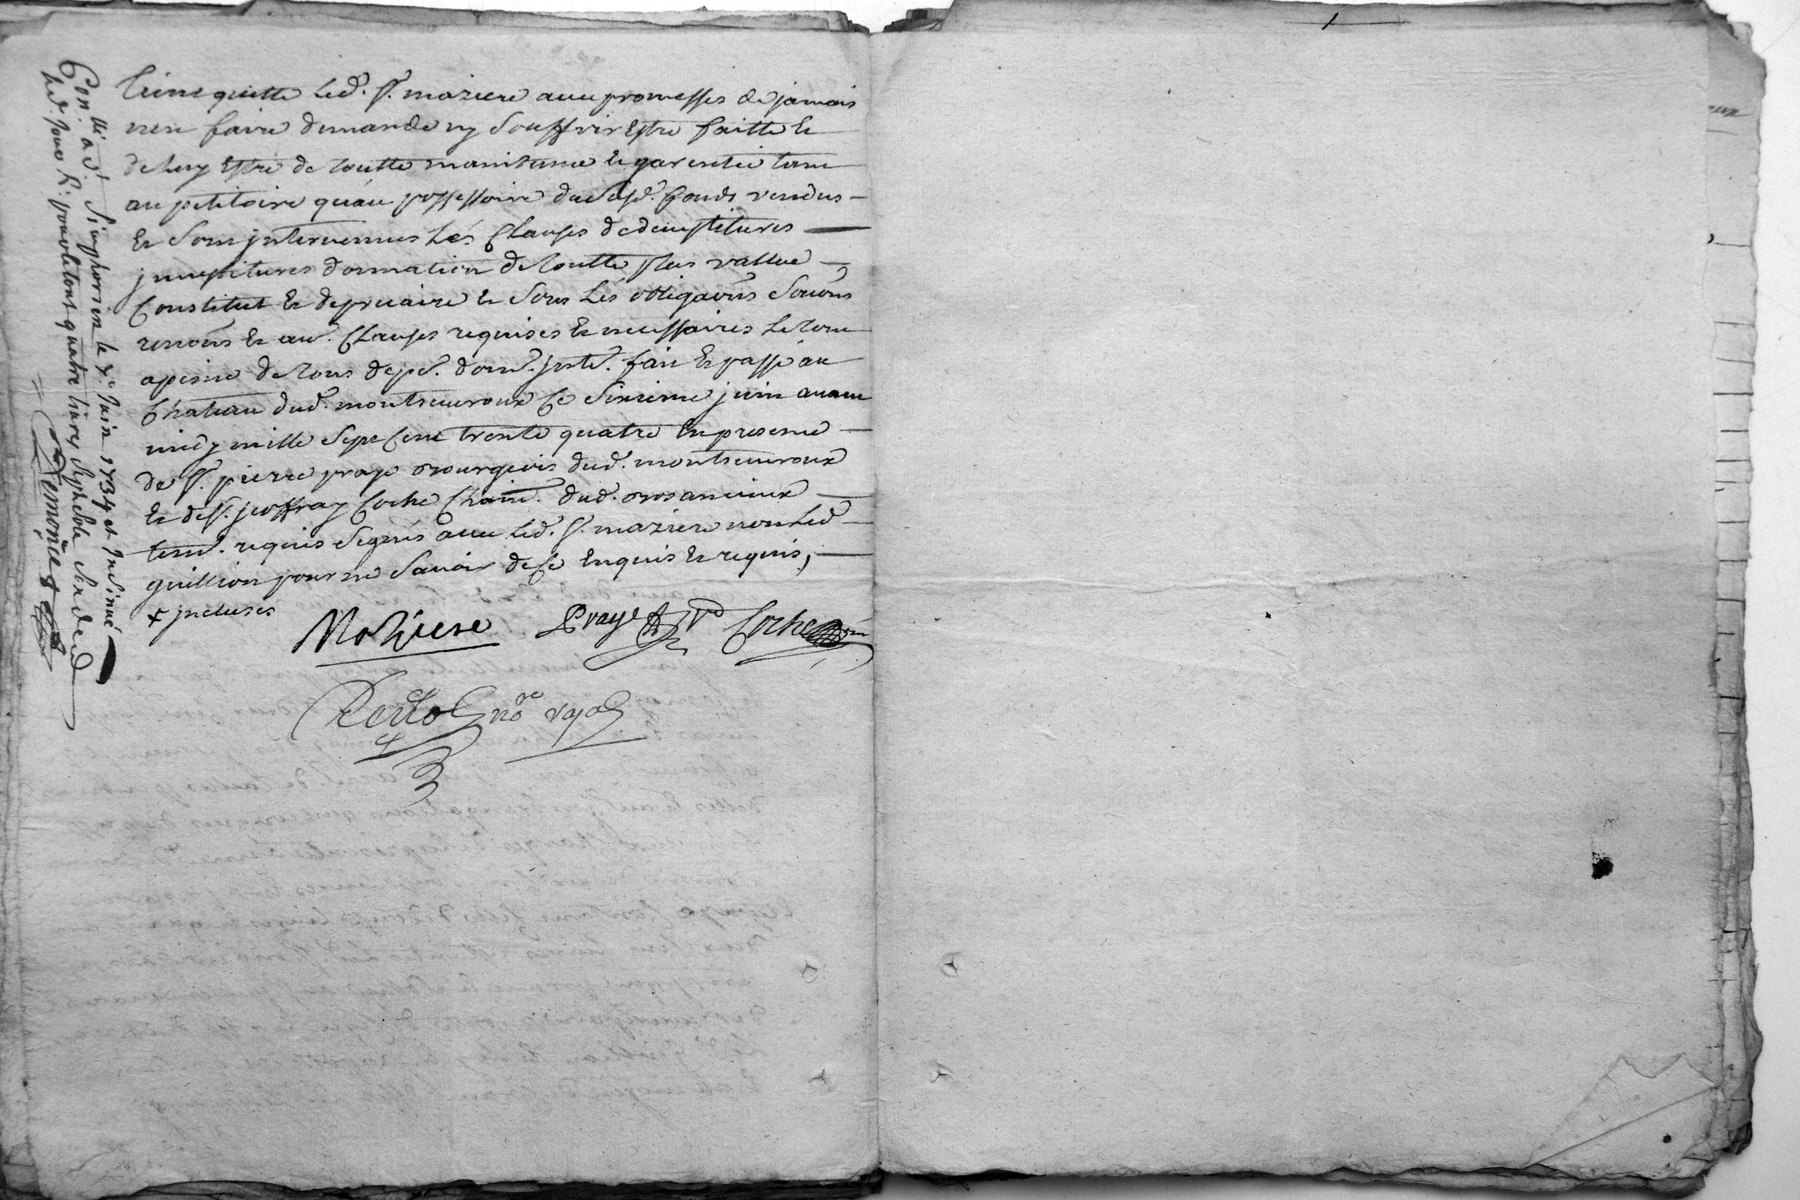 tient quitte led. Sr. maziere avec promesses de jamais
rien faire demande ny souffrir estre faitte et
de luy estre de toutte maintenue et garentie tant
au petitoire quau possessoire dud. fonds vendus
et sont intervenues les clauses de devestitures
investitures donnation de toutte plus vallue
constitut et de precaire et sous les obligaons
renons et aues. clauses requises et necessaires le tout
a peine de tous dep. dom. jnts. fait et passé au
chateau dud. montseveroux ce sixieme juin avant
midy mille sept cent trente quatre en presence
de Sr. pierre praye bourgeois dud. montseveroux
et de Sr. jeoffray Coche
tem. requis signés avec led. Sr. maziere non led.
guillion pour ne savoir de ce enquis et requis,
+ incluses
Maziere Praye Coche
nore royal
Con.llé à St. Simphorien le Juin 1734 et Insinué
led. jour R. pour le tout quatre livres sept sols six d.